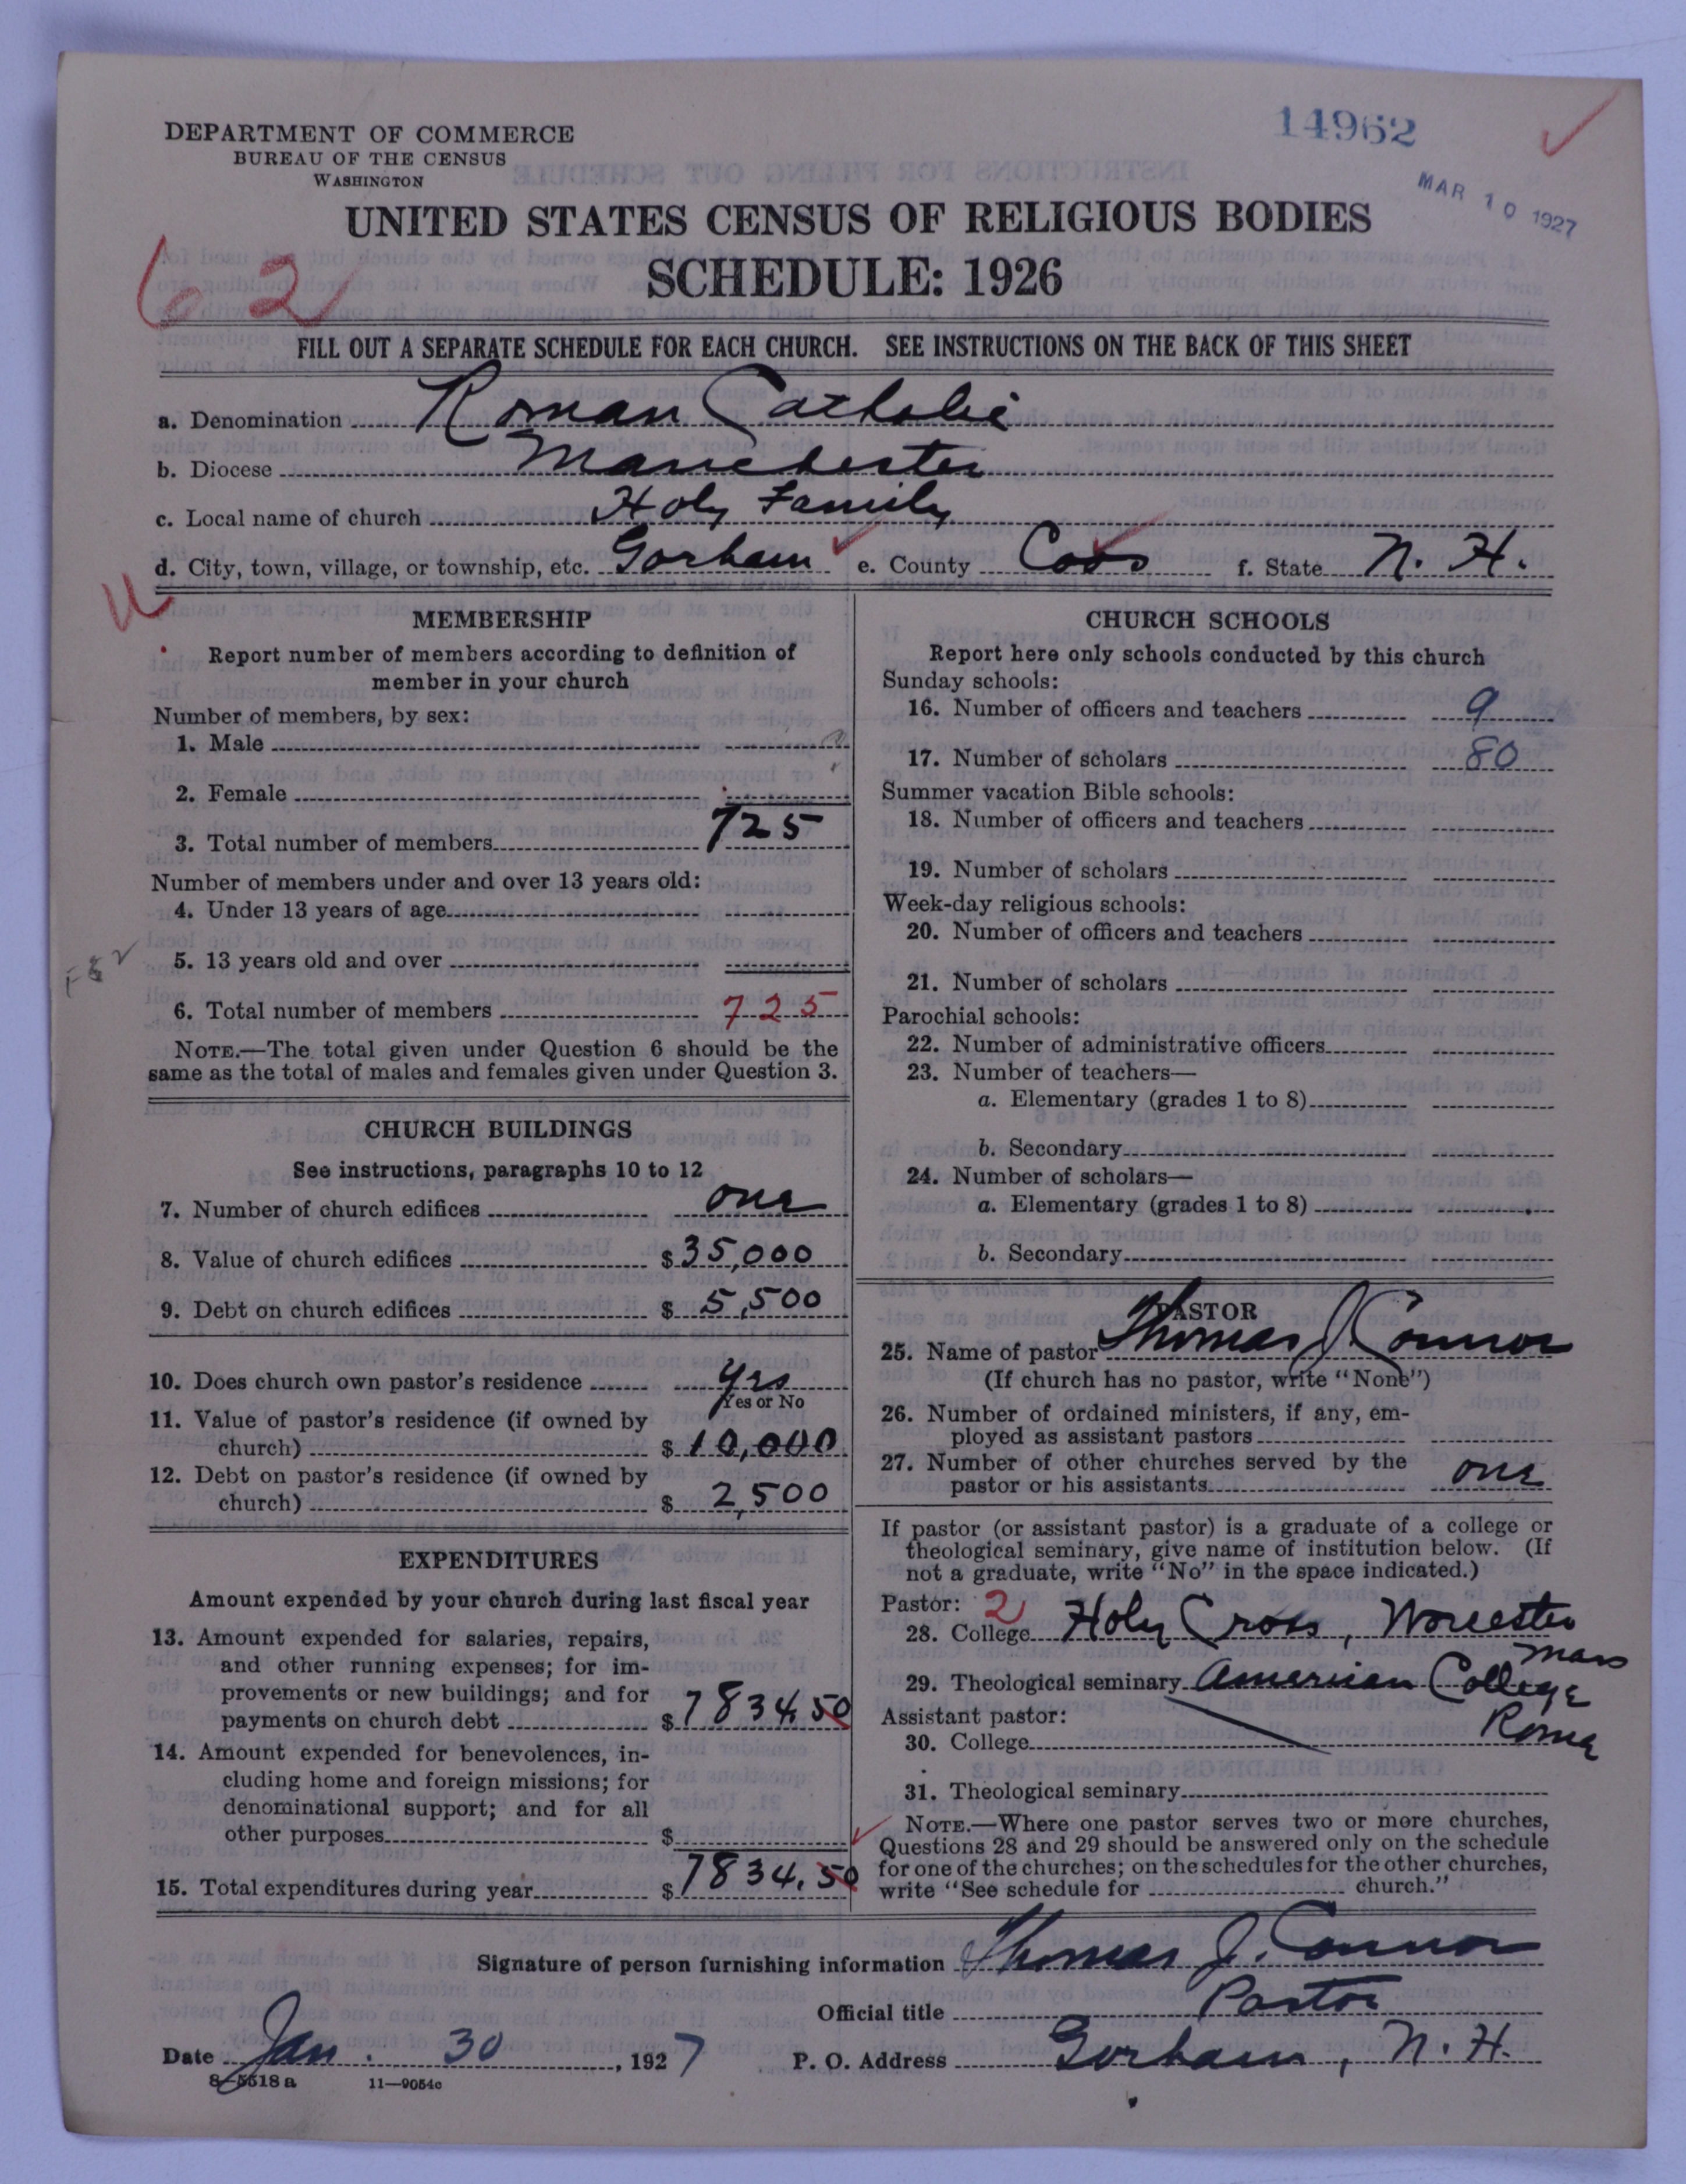 14962
MAR 10 1927
DEPARTMENT OF COMMERCE
BUREAU OF THE CENSUS
WASHINGTON
UNITED STATES CENSUS OF RELIGIOUS BODIES
SCHEDULE: 1926
62
FILL OUT A SEPARATE SCHEDULE FOR EACH CHURCH. SEE INSTRUCTIONS ON THE BACK OF THIS SHEET
a. Denomination Roman Catholic
b. Diocese Manchester
c. Local name of church Holy Family
d. City, town, village, or township, etc. Gorham e. County Coos f. State N. H.
MEMBERSHIP
Report number of members according to definition of
member in your church
Number of members, by sex:
1. Male
2. Female
3. Total number of members 725
Number of members under and over 13 years old:
4. Under 13 years of age
5. 13 years old and over
6. Total number of members 725
NOTE.—The total given under Question 6 should be the
same as the total of males and females given under Question 3.
CHURCH BUILDINGS
See instructions, paragraphs 10 to 12
7. Number of church edifices one
8. Value of church edifices $ 35,000
9. Debt on church edifices $ 5,500
10. Does church own pastor's residence Yes
Yes or No
11. Value of pastor's residence (if owned by
church) $ 10,000
12. Debt on pastor's residence (if owned by
church) $ 2,500
EXPENDITURES
Amount expended by your church during last fiscal year
13. Amount expended for salaries, repairs,
and other running expenses; for im-
provements or new buildings; and for
payments on church debt $ 7834.50
14. Amount expended for benevolences, in-
cluding home and foreign missions; for
denominational support; and for all
other purposes $
15. Total expenditures during year $ 7834.50
CHURCH SCHOOLS
Report here only schools conducted by this church
Sunday schools:
16. Number of officers and teachers 9
17. Number of scholars 80
Summer vacation Bible schools:
18. Number of officers and teachers
19. Number of scholars
Week-day religious schools:
20. Number of officers and teachers
21. Number of scholars
Parochial schools:
22. Number of administrative officers
23. Number of teachers—
a. Elementary (grades 1 to 8)
b. Secondary
24. Number of scholars—
a. Elementary (grades 1 to 8)
b. Secondary
PASTOR
25. Name of pastor Thomas J Connor
(If church has no pastor, write "None")
26. Number of ordained ministers, if any, em-
ployed as assistant pastors
27. Number of other churches served by the
pastor or his assistants one
If pastor (or assistant pastor) is a graduate of a college or
theological seminary, give name of institution below. (If
not a graduate, write "No" in the space indicated.)
Pastor: 2
28. College Holy Cross, Worcester
Mass
29. Theological seminary American College
Rome
Assistant pastor:
30. College
31. Theological seminary
NOTE.—Where one pastor serves two or more churches,
Questions 28 and 29 should be answered only on the schedule
for one of the churches; on the schedules for the other churches,
write "See schedule for church."
Signature of person furnishing information Thomas J. Connor
Official title Pastor
Date Jan. 30, 1927 P. O. Address Gorham, N. H.
8-5518a 11-9054c